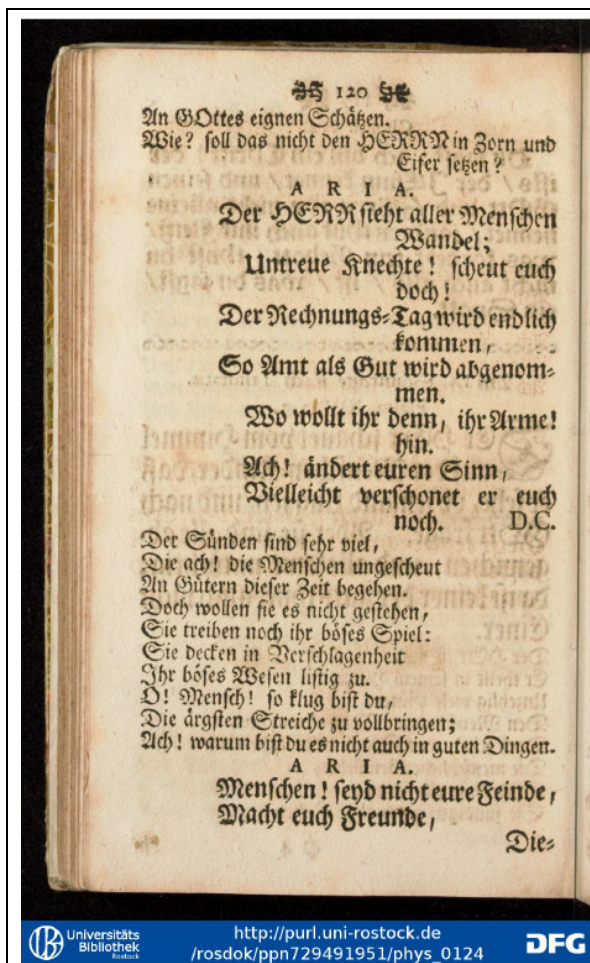 120
An GOttes eignen Schätzen.
Wie? soll das nicht den HERRN in Zorn und
Eifer setzen?
ARIA.
Der HERR sieht aller Menschen
Wandel;
Untreue Knechte! scheut euch
doch!
Der Rechnungs-Tag wird endlich
kommen,
So Amt als Gut wird abgenom-
men.
Wo wollt ihr denn, ihr Arme!
hin.
Ach! ändert euren Sinn,
Vielleicht verschonet er euch
noch. D.C.
Der Sünden sind sehr viel,
Die ach! die Menschen ungescheut
An Gütern dieser Zeit begehen.
Doch wollen sie es nicht gestehen,
Sie treiben noch ihr böses Spiel:
Sie decken in Verschlagenheit
Ihr böses Wesen listig zu.
O! Mensch! so klug bist du,
Die ärgsten Streiche zu vollbringen;
Ach! warum bist du es nicht auch in guten Dingen.
ARIA.
Menschen! seyd nicht eure Feinde,
Macht euch Freunde,
Die-
Universitäts
Bibliothek
Rostock
http://purl.uni-rostock.de
/rosdok/ppn729491951/phys_0124
DFG